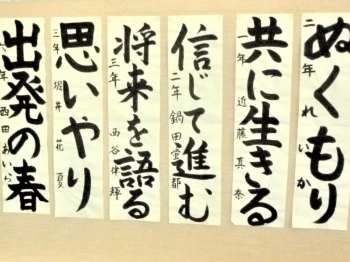 ぬくもり
二年 れいか
共に生きる
一年 近藤真奈
信じて進む
二年 鍋田蛍都
将来を語る
三年 西谷倖輝
思いやり
三年 堀井花夏
出発の春
年 西田あいら